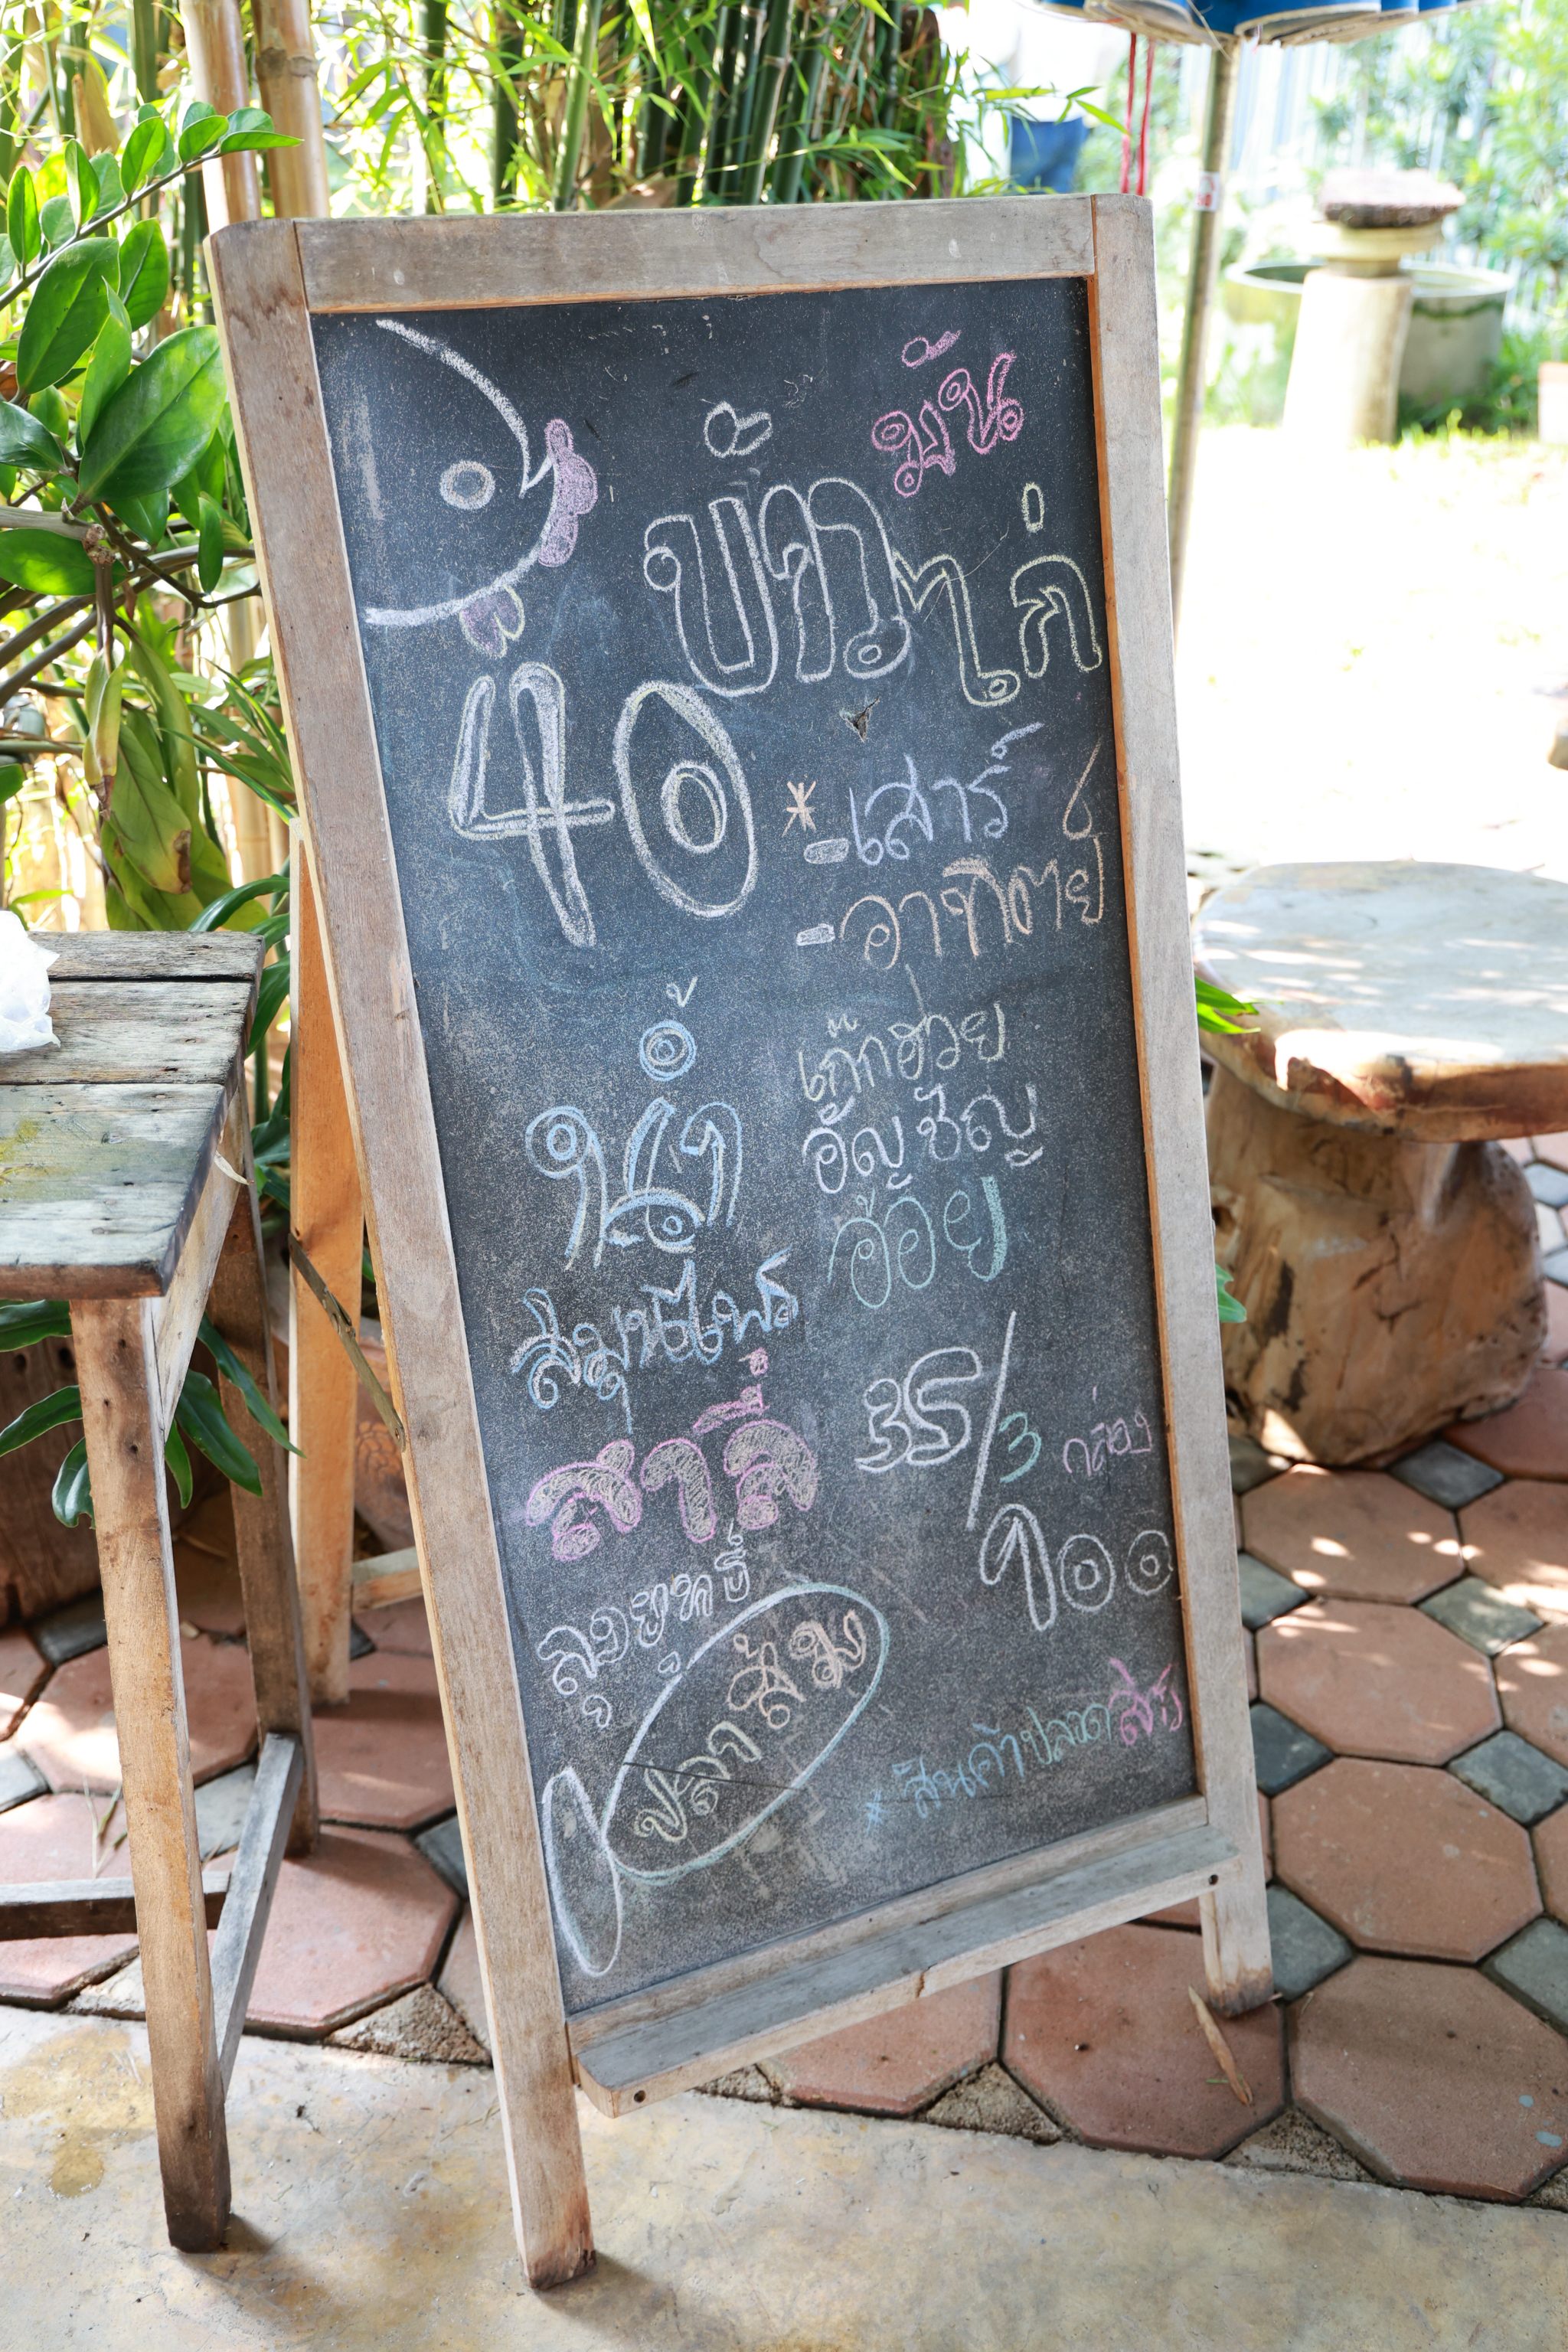 ข้าวมันไก่
40
* - เสาร์
- อาทิตย์
น้ำ
สมุนไพร
เก๊กฮวย
อัญชัญ
อ้อย
สาลี่
ลูกยูทยี
35/3 กล่อง
๑๐๐
ปลาส้ม
* สินค้าปลอดสาร